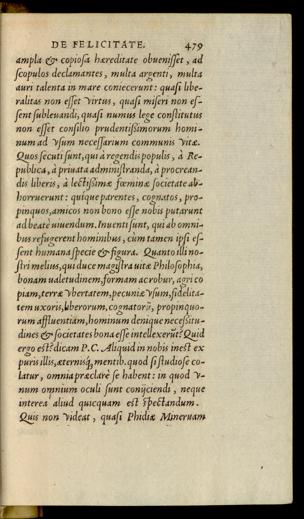 DE FELICITATE. 479
ampla & copiosa hæreditate obuenisset, ad
scopulos declamantes, multa argenti, multa
auri talenta in mare coniecerunt: quasi libe-
ralitas non esset virtus, quasi miseri non es-
sent subleuandi, quasi numus lege constitutus
non esset consilio prudentissimorum homi-
num ad vsum necessarium communis vitæ.
Quos secuti sunt, qui à regendis populis, à Re-
publica, à priuata administranda, à procrean-
dis liberis, à lectissimæ fœminæ societate ab-
horruerunt: quique parentes, cognatos, pro-
pinquos, amicos non bono esse nobis putarunt
ad beatè uiuendum. Inuenti sunt, qui ab omni-
bus refugerent hominibus, cùm tamen ipsi es-
sent humana specie & figura. Quanto illi no-
stri melius, qui duce magistra uitæ Philosophia,
bonam ualetudinem, formam ac robur, agri co
piam, terræ vbertatem, pecuniæ vsum, fidelita-
tem uxoris, liberorum, cognatorũ, propinquo-
rum affluentiam, hominum denique necessitu-
dines & societates bona esse intellexerũt? Quid
ergo est? dicam P. C. Aliquid in nobis inest ex
puris illis, æternisq́; mentib. quod si studiose co-
latur, omnia præclarè se habent: in quod v-
num omnium oculi sunt conijciendi, neque
interea aliud quicquam est spectandum.
Quis non videat, quasi Phidiæ Mineruam